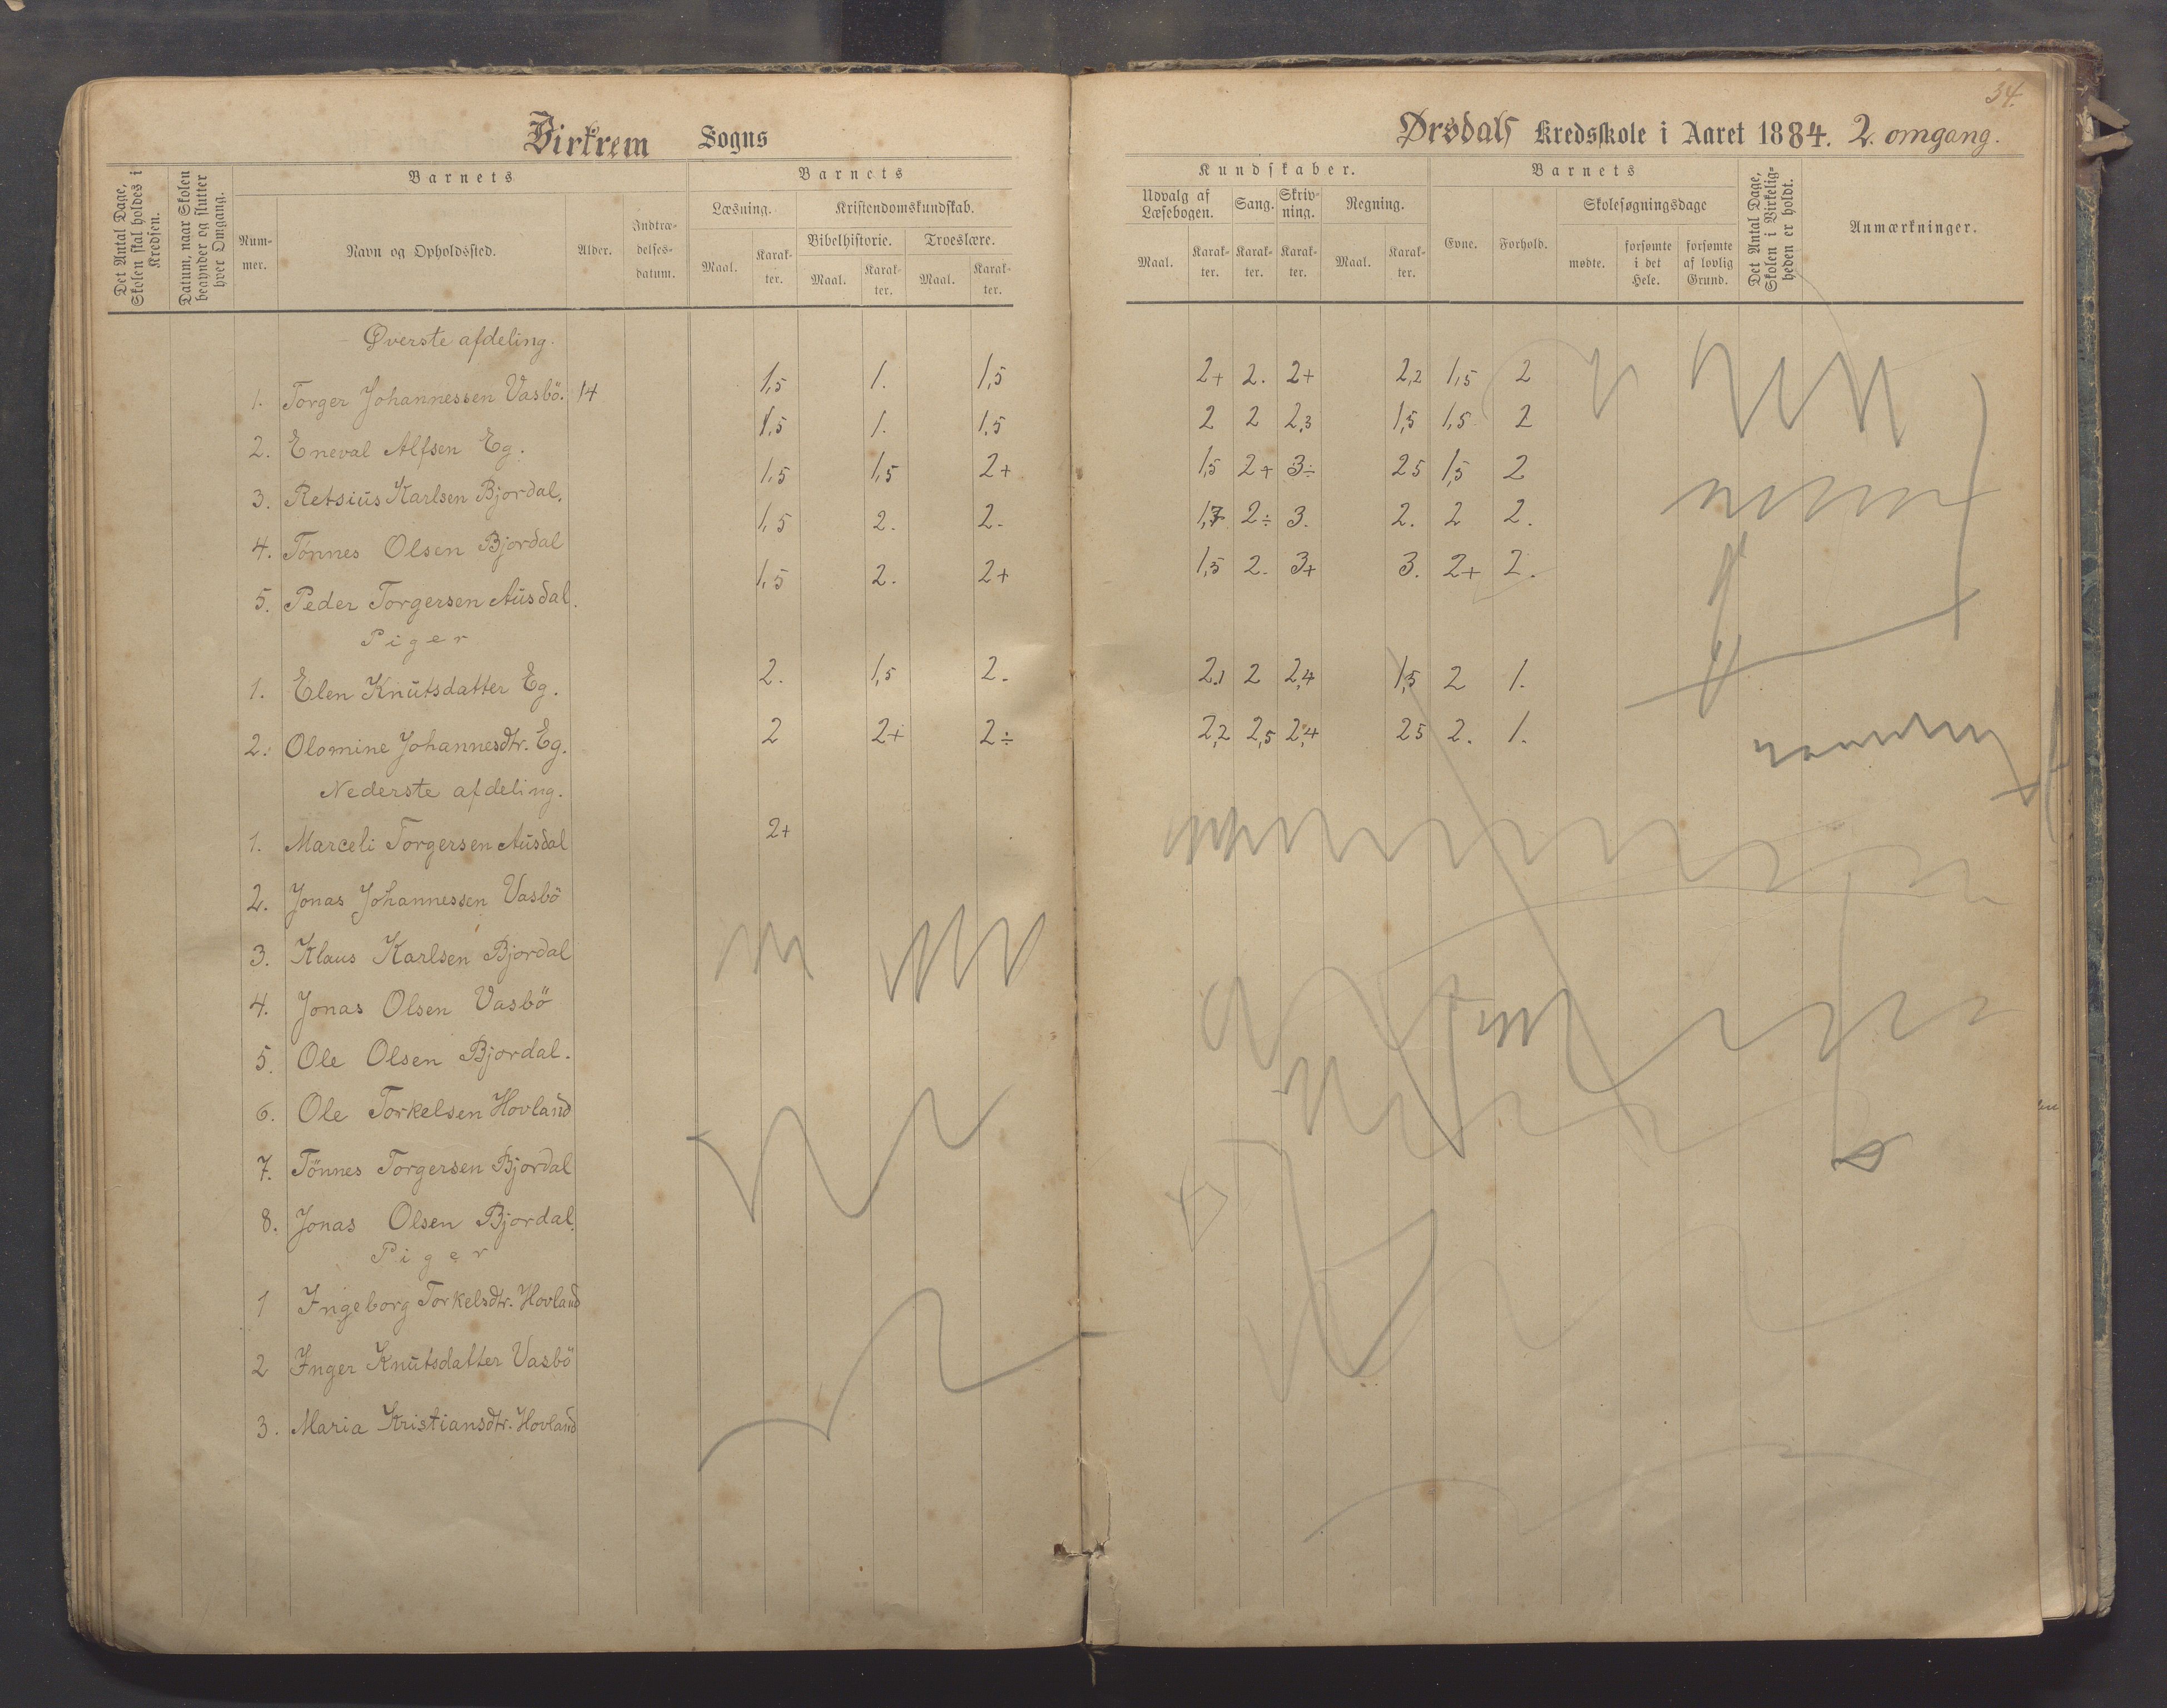 34.
Birkrem Sogns
Ørsdals Kredsskole i Aaret 1884. 2. omgang.
Det Antal Dage, Skolen skal holdes i Kredsen.
Datum, naar Skolen begynder og slutter hver Omgang.
Barnets
Nummer.
Navn og Opholdssted.
Alder.
Indtrædelses-datum.
Barnets
Læsning.
Maal.
Karakter.
Kristendomskundskab.
Bibelhistorie.
Maal.
Karakter.
Troeslære.
Maal.
Karakter.
Kundskaber.
Udvalg af Læsebogen.
Maal.
Karakter.
Sang.
Karakter.
Skrivning.
Karakter.
Regning.
Maal.
Karakter.
Barnets
Evne.
Forhold.
Skolesøgningsdage
mødte.
forsømte i det Hele.
forsømte af lovlig Grund.
Det Antal Dage, Skolen i Virkeligheden er holdt.
Anmærkninger.
Øverste afdeling.
1. Torger Johannessen Vasbö. 14 1,5 1. 1,5 2+ 2. 2+ 2,2 1,5 2
2. Eneval Alfsen Eg. 1,5 1. 1,5 2 2 2,3 1,5 1,5 2
3. Retsius Karlsen Bjordal. 1,5 1,5 2+ 1,5 2+ 3÷ 25 1,5 2
4. Tönnes Olsen Bjordal 1,5 2. 2. 1,7 2÷ 3. 2. 2 2.
5. Peder Torgersen Ausdal. 1,5 2. 2+ 1,5 2. 3+ 3. 2+ 2.
Piger
1. Elen Knutsdatter Eg. 2. 1,5 2. 2,1 2 2,4 1,5 2 1.
2. Olomine Johannesdtr. Eg. 2 2+ 2÷ 2,2 2,5 2,4 25 2. 1.
Nederste afdeling.
1. Marceli Torgersen Ausdal 2+
2. Jonas Johannessen Vasbö
3. Klaus Karlsen Bjordal
4. Jonas Olsen Vasbö
5. Ole Olsen Bjordal.
6. Ole Torkelsen Hovland
7. Tönnes Torgersen Bjordal
8. Jonas Olsen Bjordal.
Piger
1 Ingeborg Torkelsdtr. Hovland
2 Inger Knutsdatter Vasbö
3. Maria Kristiansdtr. Hovland